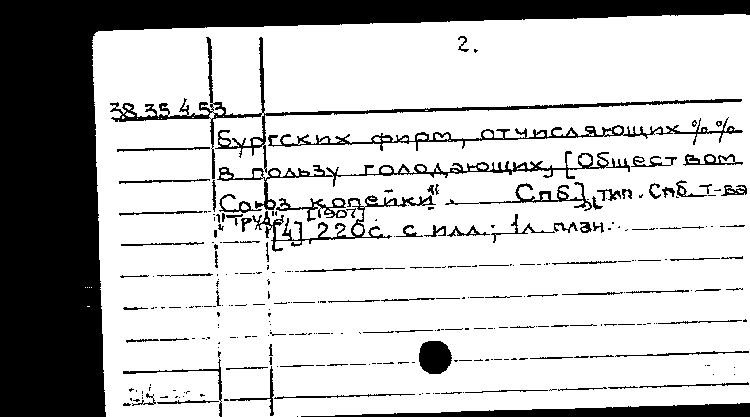 2.
38.35.4.53
бургских фирм, отчисляющих %%
в пользу голодающих, [Обществом
Союз копейки". Спб], тип. Спб. т-ва
"Труд", [1907]
[4], 220с. с илл.; 1л. план.